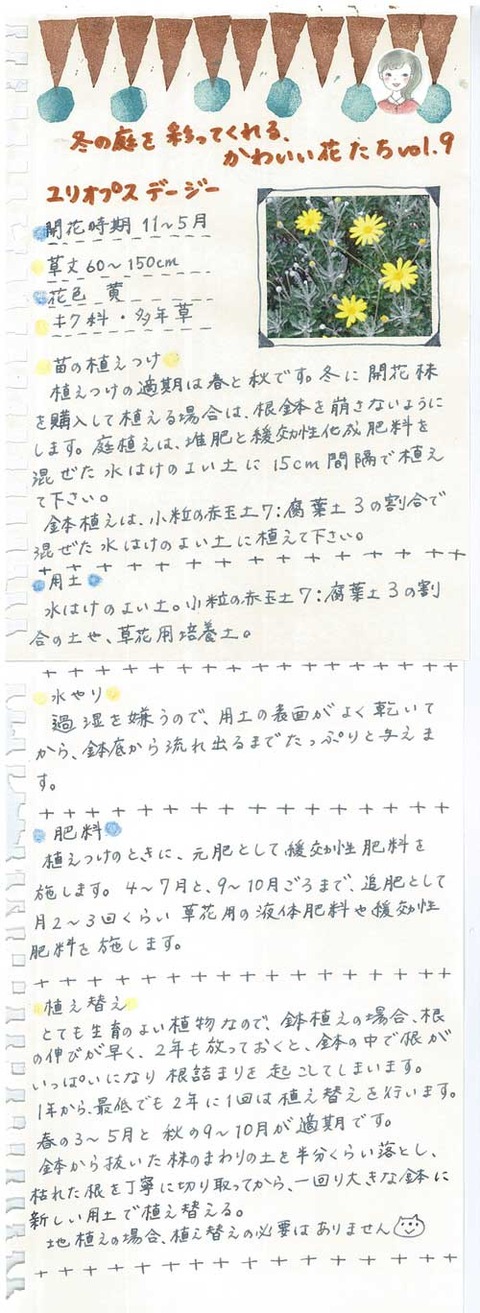 冬の庭を彩ってくれる、
かわいい花たちvol.9
ユリオプスデージー
開花時期 11～5月
草丈60～150cm
花色 黄
キク科・多年草
苗の植えつけ
植えつけの適期は春と秋です。冬に開花株
を購入して植える場合は、根鉢を崩さないように
します。庭植えは、堆肥と緩効性化成肥料を
混ぜた水はけのよい土に15cm間隔で植え
て下さい。
鉢植えは、小粒の赤玉土7:腐葉土3の割合で
混ぜた水はけのよい土に植えて下さい。
用土
水はけのよい土。小粒の赤玉土7:腐葉土3の割
合の土や、草花用培養土。
水やり
過湿を嫌うので、用土の表面がよく乾いて
から、鉢底から流れ出るまでたっぷりと与えま
す。
肥料
植えつけのときに、元肥として緩効性肥料を
施します。4～7月と、9～10月ごろまで、追肥として
月2～3回くらい草花用の液体肥料や緩効性
肥料を施します。
植え替え
とても生育のよい植物なので、鉢植えの場合、根
の伸びが早く、2年も放っておくと、鉢の中で根が
いっぱいになり根詰まりを起こしてしまいます。
1年から、最低でも2年に1回は植え替えを行います。
春の3～5月と秋の9～10月が適期です。
鉢から抜いた株のまわりの土を半分くらい落とし、
枯れた根を丁寧に切り取ってから、一回り大きな鉢に
新しい用土で植え替える。
地植えの場合、植え替えの必要はありません